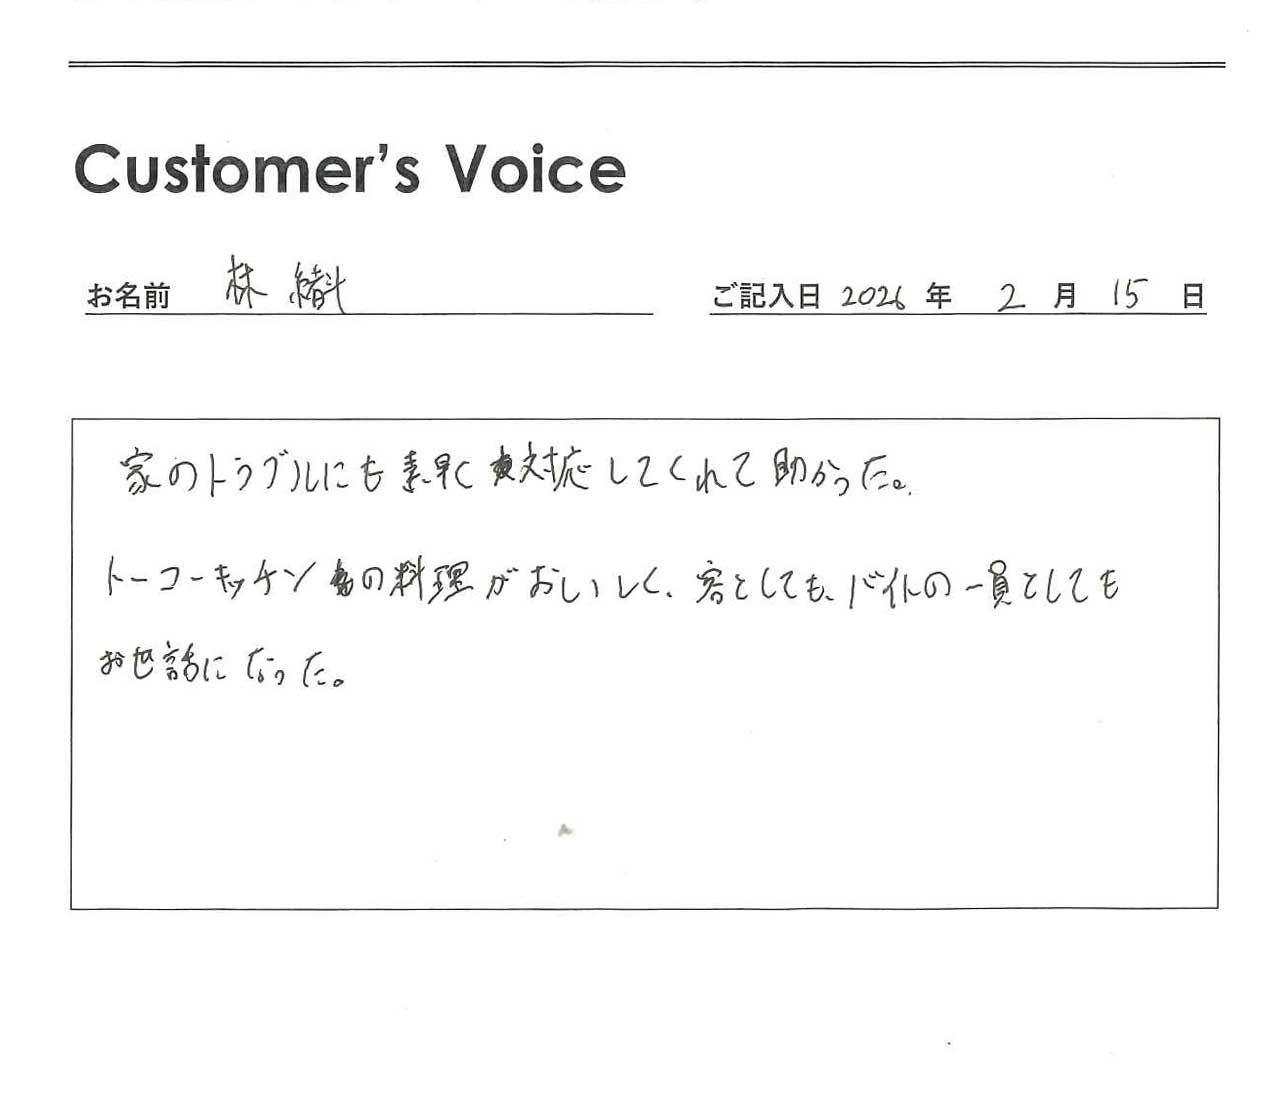 Customer's Voice
お名前 林 緒斗
ご記入日 2026 年 2 月 15 日
家のトラブルにも素早く対応してくれて助かった。
トーコーキッチンの料理がおいしく、客としても、バイトの一員としても
お世話になった。